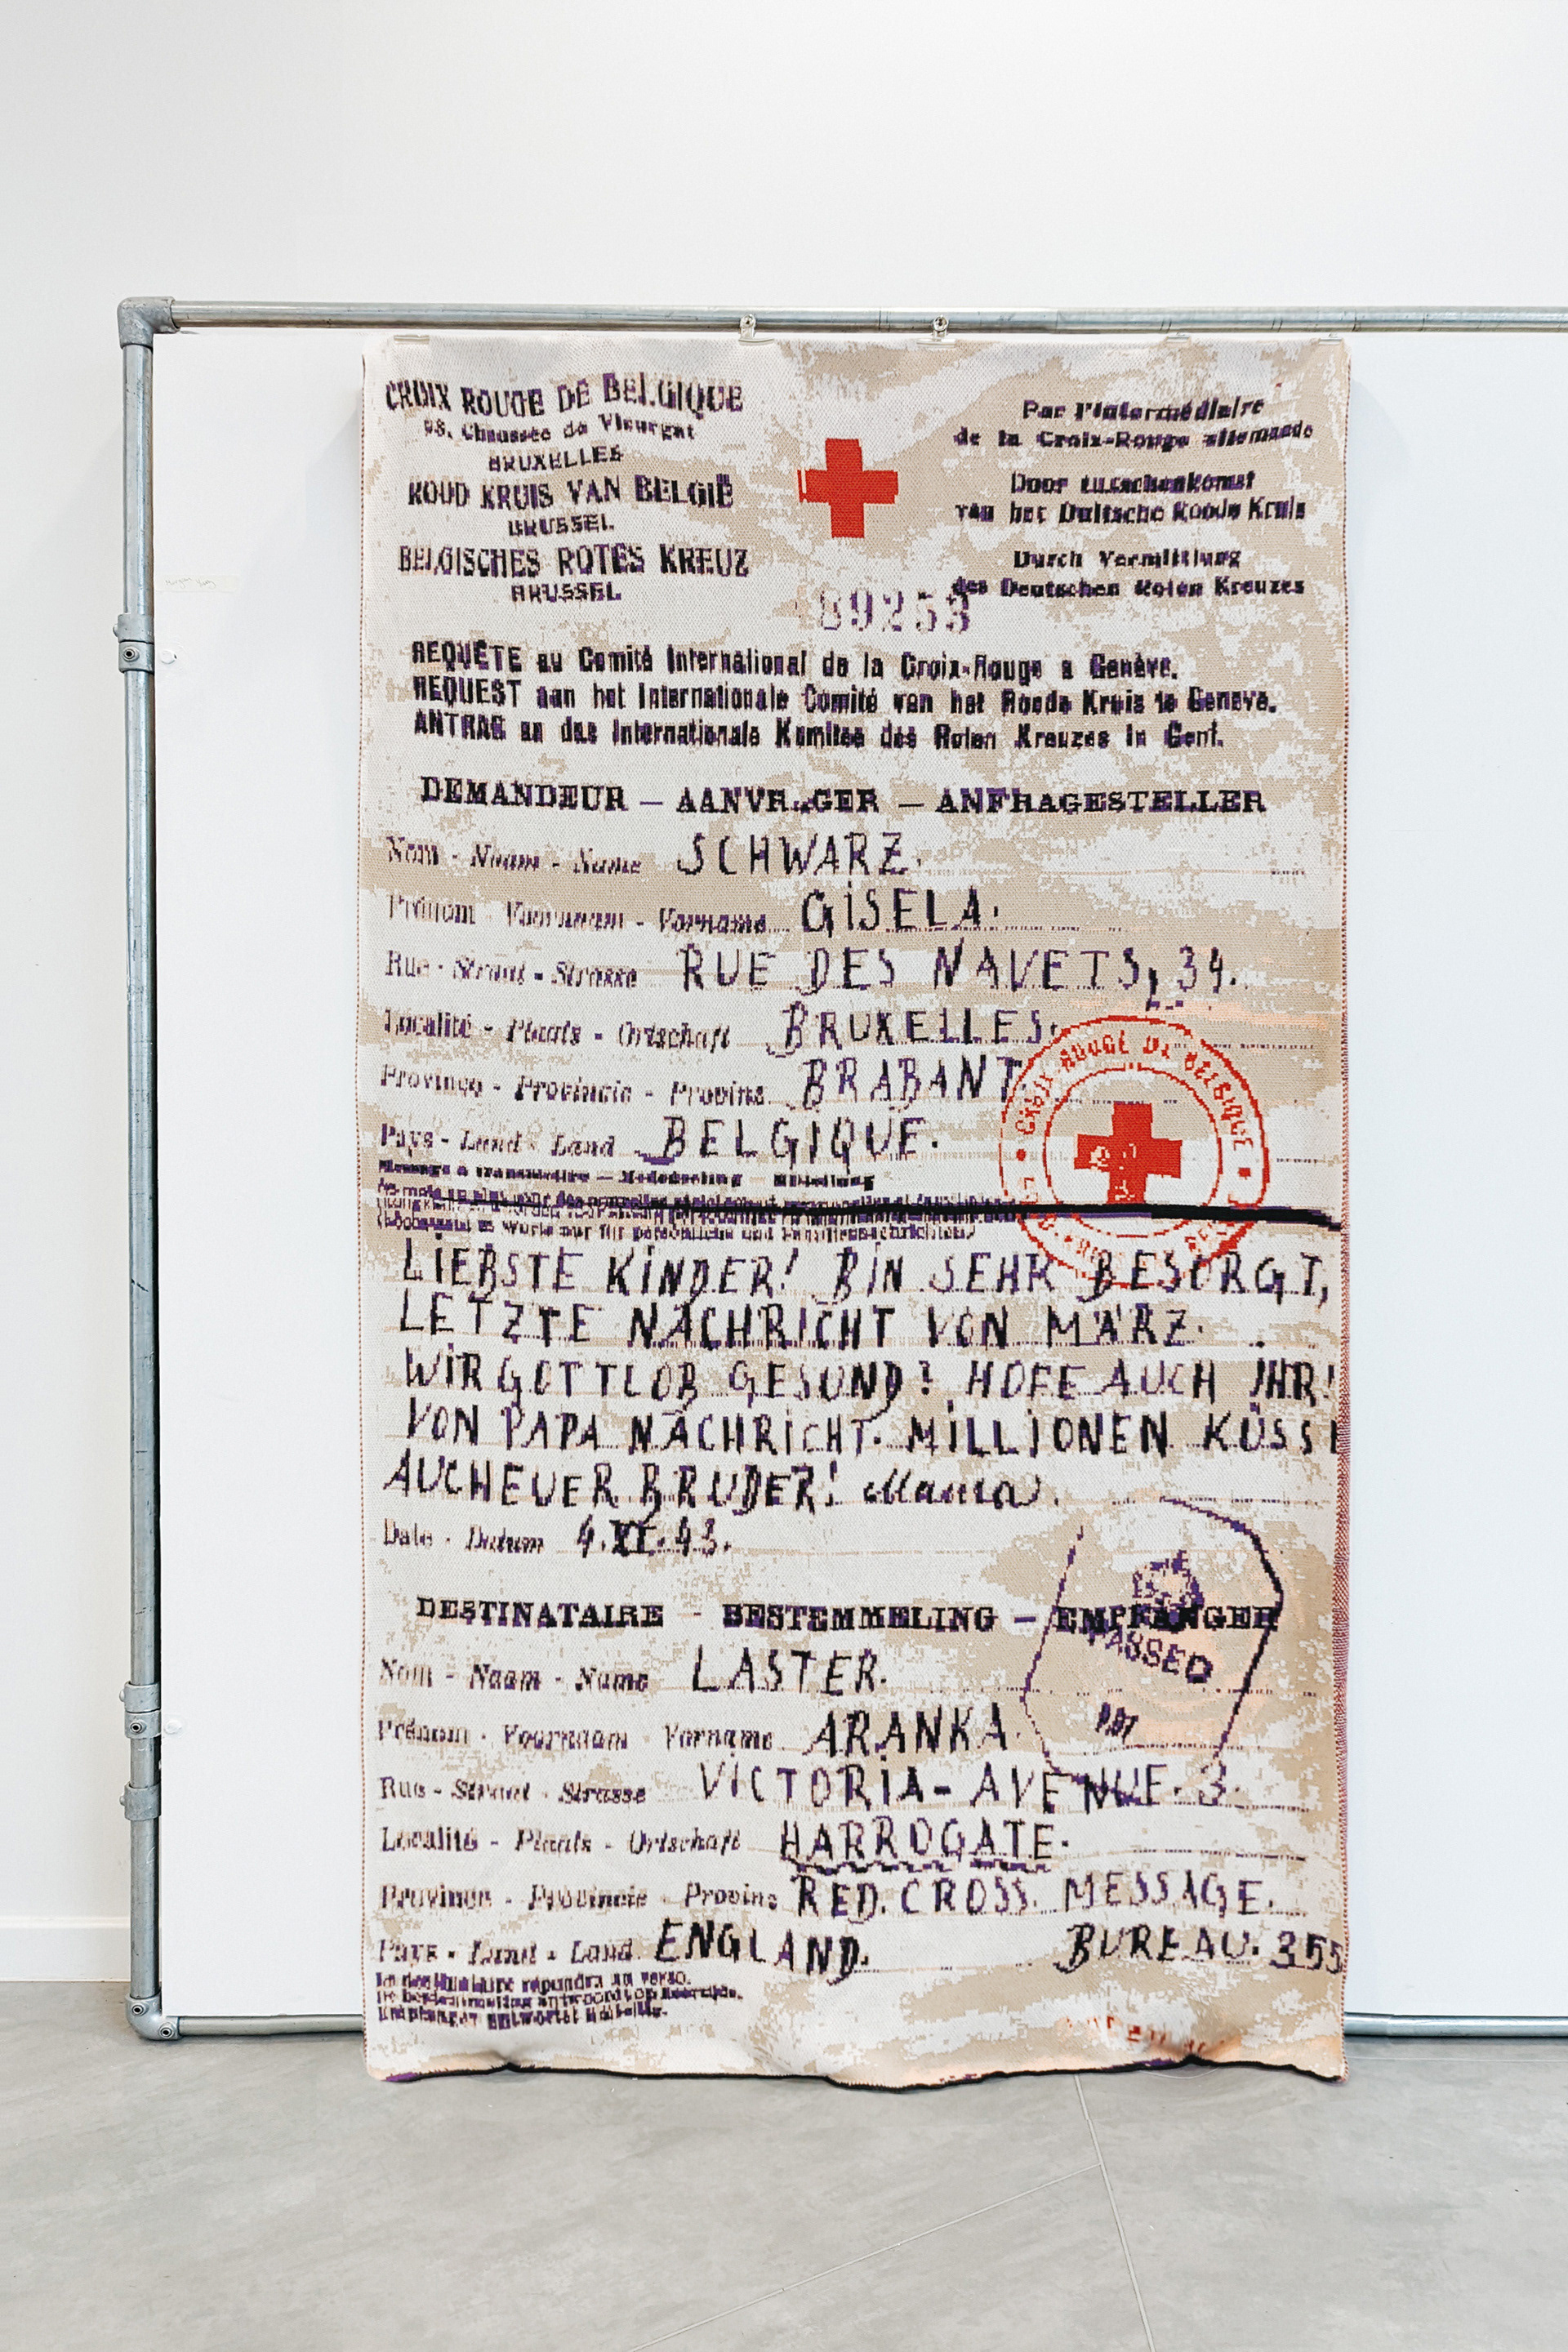 CROIX ROUGE DE BELGIQUE
98, Chaussée de Vleurgat
BRUXELLES
ROOD KRUIS VAN BELGIË
BRUSSEL
BELGISCHES ROTES KREUZ
BRUSSEL
Par l'intermédiaire
de la Croix-Rouge allemande
Door tusschenkomst
van het Duitsche Roode Kruis
Durch Vermittlung
des Deutschen Roten Kreuzes
89253
REQUÊTE au Comité International de la Croix-Rouge a Genève.
REQUEST aan het Internationale Comité van het Roode Kruis te Geneve.
ANTRAG an das Internationale Komitee des Roten Kreuzes in Genf.
DEMANDEUR – AANVRAGER – ANFRAGESTELLER
Nom - Naam - Name SCHWARZ.
Prénom - Voornaam - Vorname GISELA.
Rue - Straat - Strasse RUE DES NAVETS, 34.
Localité - Plaats - Ortschaft BRUXELLES.
Province - Provincie - Provinz BRABANT.
Pays - Land - Land BELGIQUE.
CROIX ROUGE DE BELGIQUE
Message à transmettre – Mededeeling – Mitteilung
LIEBSTE KINDER! BIN SEHR BESORGT,
LETZTE NACHRICHT VON MÄRZ.
WIR GOTTLOB GESUND! HOFE AUCH IHR!
VON PAPA NACHRICHT. MILLIONEN KÜSS
AUCH EUER BRUDER! Mama.
Date - Datum 4.XI.43.
DESTINATAIRE - BESTEMMELING – EMPFÄNGER
PASSED
Nom - Naam - Name LASTER.
Prénom - Voornaam - Vorname ARANKA.
Rue - Straat - Strasse VICTORIA - AVENUE. 3.
Localité - Plaats - Ortschaft HARROGATE.
Province - Provincie - Provinz RED. CROSS. MESSAGE.
Pays - Land - Land ENGLAND. BUREAU. 355